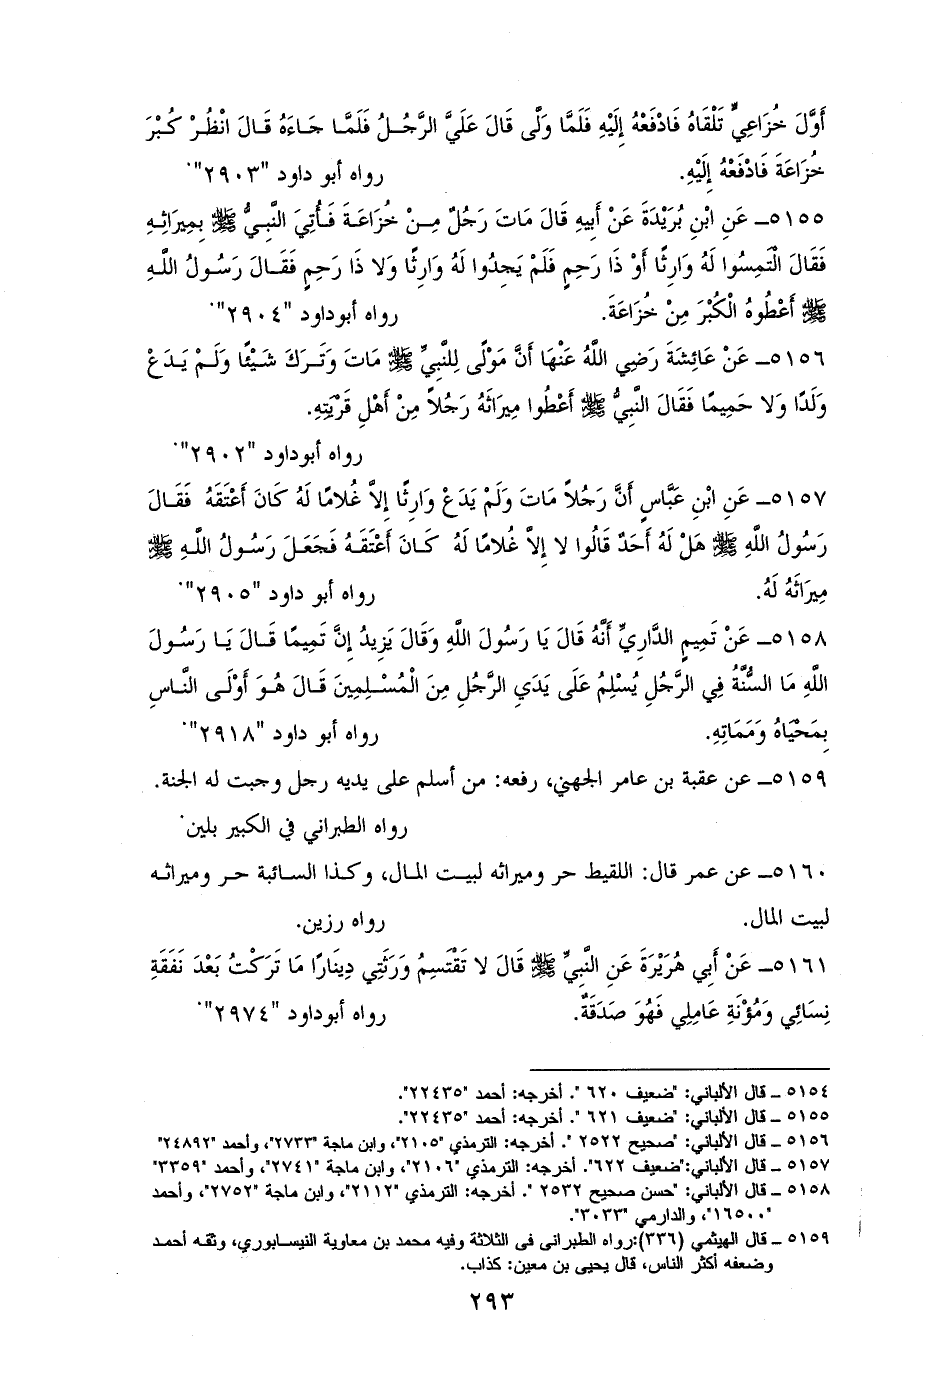 أَوَّلَ خُزَاعِيٍّ تَلْقَاهُ فَادْفَعْهُ إِلَيْهِ فَلَمَّا وَلَّى قَالَ عَلَيَّ الرَّجُلُ فَلَمَّا جَاءَهُ قَالَ انْظُرْ كُبْرَ
خُزَاعَةَ فَادْفَعْهُ إِلَيْهِ. رواه أبو داود "٢٩٠٣".
٥١٥٥ـ عَنِ ابْنِ بُرَيْدَةَ عَنْ أَبِيهِ قَالَ مَاتَ رَجُلٌ مِنْ خُزَاعَةَ فَأُتِيَ النَّبِيُّ ﷺ بِمِيرَاثِهِ
فَقَالَ الْتَمِسُوا لَهُ وَارِثًا أَوْ ذَا رَحِمٍ فَلَمْ يَجِدُوا لَهُ وَارِثًا وَلا ذَا رَحِمٍ فَقَالَ رَسُولُ اللَّهِ
ﷺ أَعْطُوهُ الْكُبْرَ مِنْ خُزَاعَةَ. رواه أبوداود "٢٩٠٤".
٥١٥٦ـ عَنْ عَائِشَةَ رَضِي اللَّهُ عَنْهَا أَنَّ مَوْلًى لِلنَّبِيِّ ﷺ مَاتَ وَتَرَكَ شَيْئًا وَلَمْ يَدَعْ
وَلَدًا وَلا حَمِيمًا فَقَالَ النَّبِيُّ ﷺ أَعْطُوا مِيرَاثَهُ رَجُلاً مِنْ أَهْلِ قَرْيَتِهِ.
رواه أبوداود "٢٩٠٢".
٥١٥٧ـ عَنِ ابْنِ عَبَّاسٍ أَنَّ رَجُلاً مَاتَ وَلَمْ يَدَعْ وَارِثًا إِلاَّ غُلامًا لَهُ كَانَ أَعْتَقَهُ فَقَالَ
رَسُولُ اللَّهِ ﷺ هَلْ لَهُ أَحَدٌ قَالُوا لا إِلاَّ غُلامًا لَهُ كَانَ أَعْتَقَهُ فَجَعَلَ رَسُولُ اللَّهِ ﷺ
مِيرَاثَهُ لَهُ. رواه أبو داود "٢٩٠٥".
٥١٥٨ـ عَنْ تَمِيمٍ الدَّارِيِّ أَنَّهُ قَالَ يَا رَسُولَ اللَّهِ وَقَالَ يَزِيدُ إِنَّ تَمِيمًا قَالَ يَا رَسُولَ
اللَّهِ مَا السُّنَّةُ فِي الرَّجُلِ يُسْلِمُ عَلَى يَدَيِ الرَّجُلِ مِنَ الْمُسْلِمِينَ قَالَ هُوَ أَوْلَى النَّاسِ
بِمَحْيَاهُ وَمَمَاتِهِ. رواه أبو داود "٢٩١٨".
٥١٥٩ـ عن عقبة بن عامر الجهني، رفعه: من أسلم على يديه رجل وجبت له الجنة.
رواه الطبراني في الكبير بلين.
٥١٦٠ـ عن عمر قال: اللقيط حر وميراثه لبيت المال، وكذا السائبة حر وميراثه
لبيت المال. رواه رزين.
٥١٦١ـ عَنْ أَبِي هُرَيْرَةَ عَنِ النَّبِيِّ ﷺ قَالَ لا تَقْتَسِمُ وَرَثَتِي دِينَارًا مَا تَرَكْتُ بَعْدَ نَفَقَةِ
نِسَائِي وَمُؤْنَةِ عَامِلِي فَهُوَ صَدَقَةٌ. رواه أبوداود "٢٩٧٤".
٥١٥٤ ـ قال الألباني: "ضعيف ٦٢٠ ". أخرجه: أحمد "٢٢٤٣٥".
٥١٥٥ ـ قال الألباني: "ضعيف ٦٢١ ". أخرجه: أحمد "٢٢٤٣٥".
٥١٥٦ ـ قال الألباني: "صحيح ٢٥٢٢ ". أخرجه: الترمذي "٢١٠٥"، وابن ماجة "٢٧٣٣"، وأحمد "٢٤٨٩٢"
٥١٥٧ ـ قال الألباني:"ضعيف ٦٢٢". أخرجه: الترمذي "٢١٠٦"، وابن ماجة "٢٧٤١"، وأحمد "٣٣٥٩"
٥١٥٨ ـ قال الألباني: "حسن صحيح ٢٥٣٢ ". أخرجه: الترمذي "٢١١٢"، وابن ماجة "٢٧٥٢"، وأحمد
"١٦٥٠٠"، والدارمي "٣٠٣٣".
٥١٥٩ ـ قال الهيثمي (٣٣٦):رواه الطبراني فى الثلاثة وفيه محمد بن معاوية النيسابوري، وثقه أحمد
وضعفه أكثر الناس، قال يحيى بن معين: كذاب.
٢٩٣